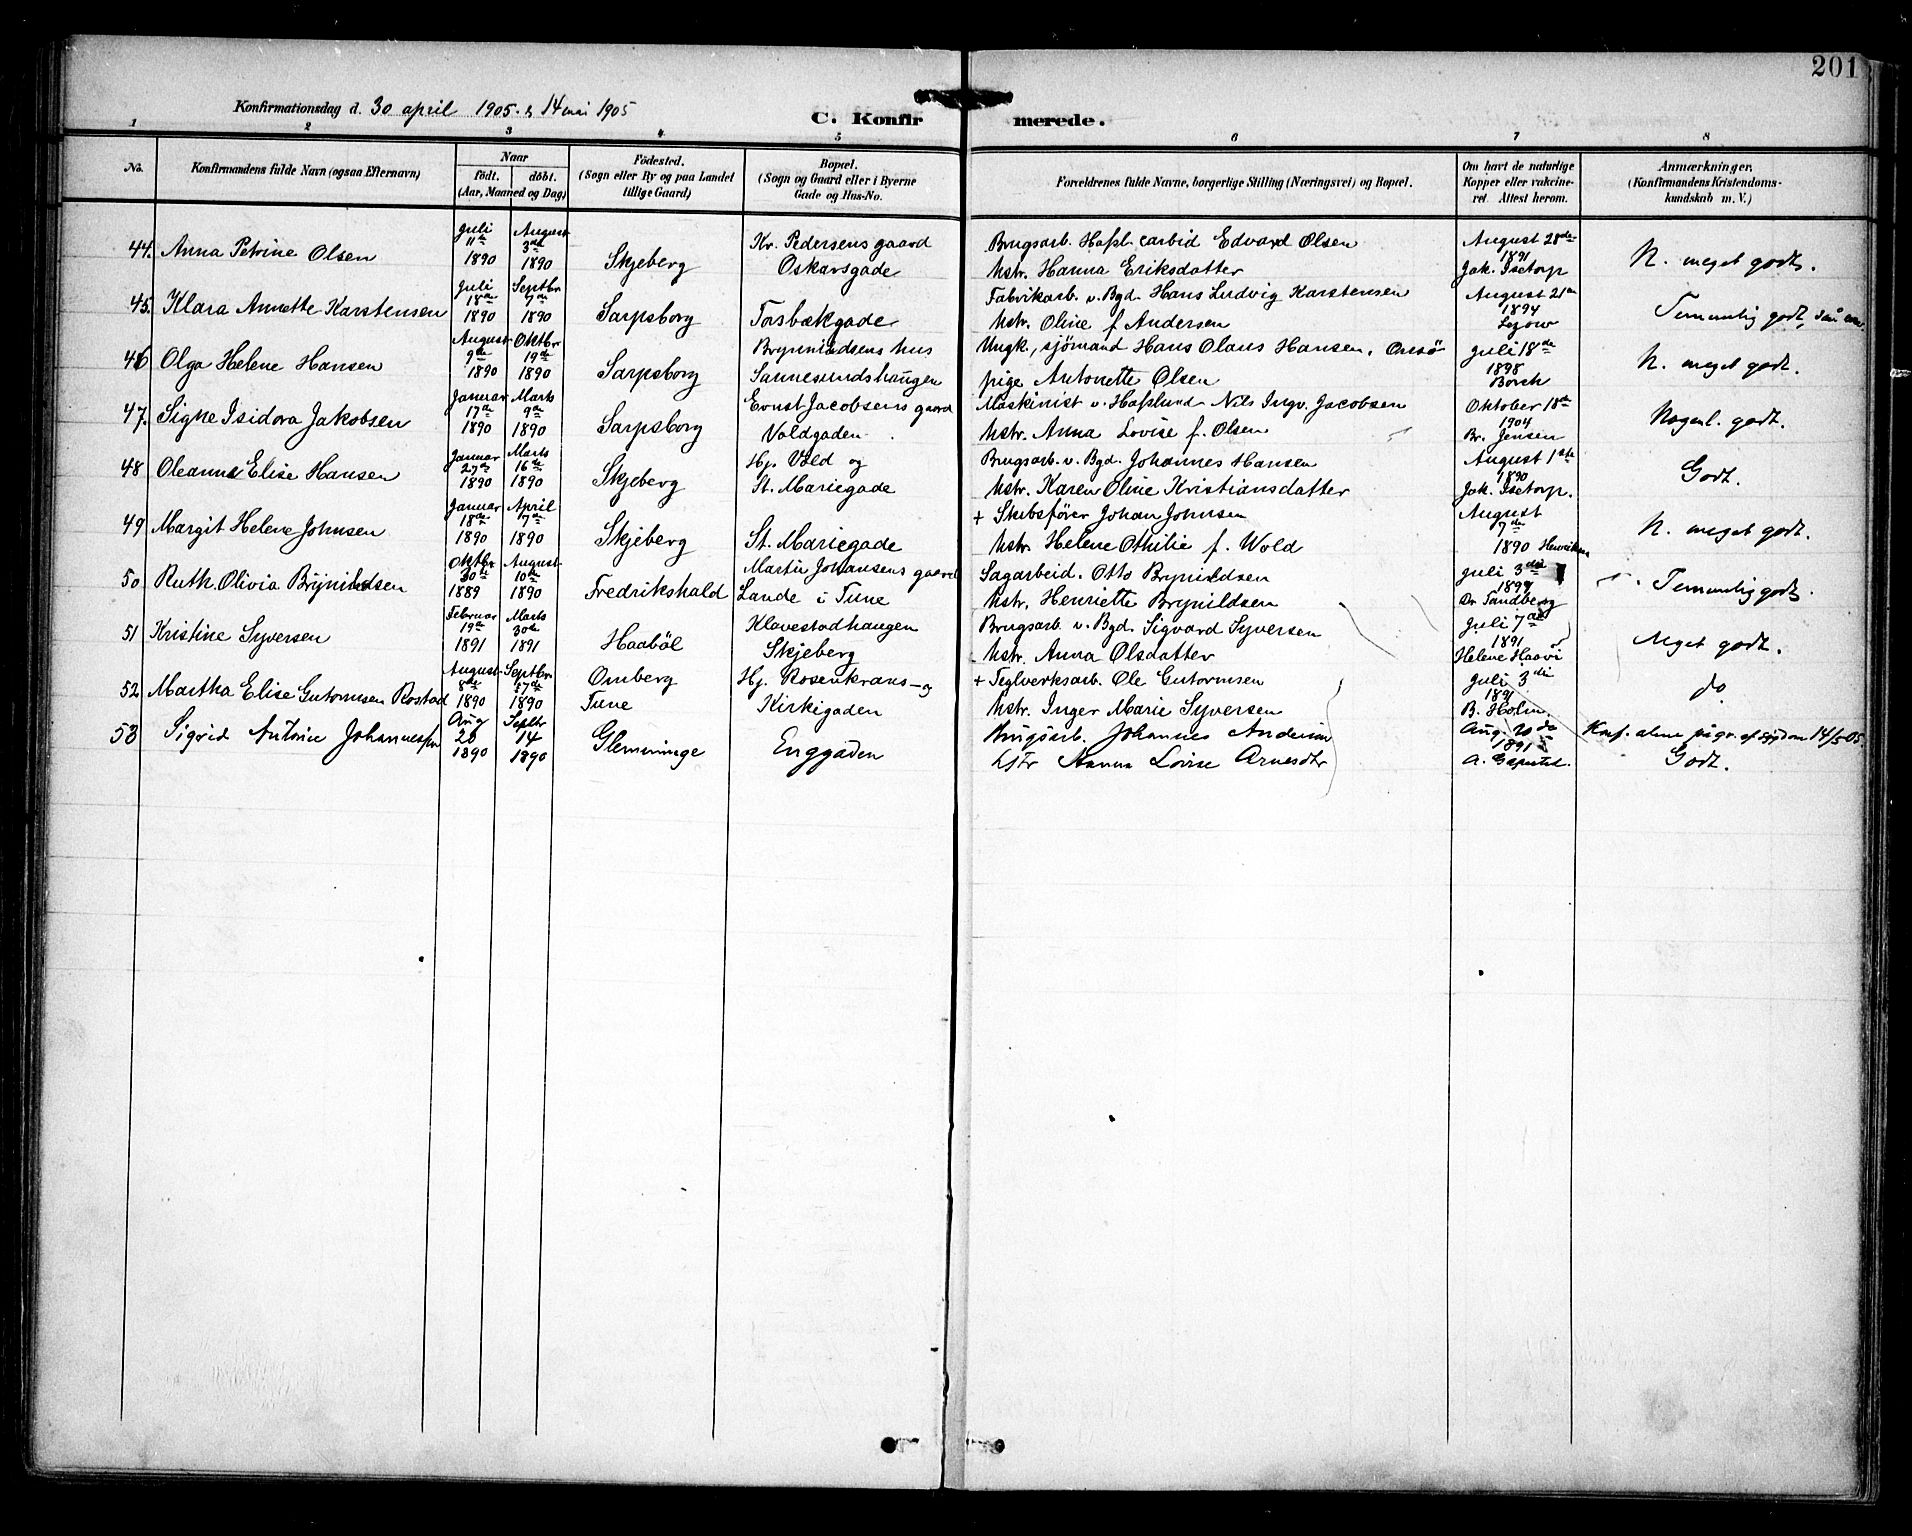 201
Konfirmationsdag d. 30 april 1905. & 14 mai 1905
C. Konfirmerede.
1 2 3 4 5 6 7 8
No.
Konfirmandens fulde Navn (ogsaa Efternavn)
Naar
födt. döbt.
(Aar, Maaned og Dag)
Födested.
(Sogn eller By og paa Landet
tillige Gaard)
Bopæl.
(Sogn og Gaard eller i Byerne
Gade og Hus-No.
Forældrenes fulde Navne, borgerlige Stilling (Næringsvei) og Bopæl.
Om havt de naturlige
Kopper eller vakcine-
ret. Attest herom.
Anmærkninger.
(Konfirmandens Kristendoms-
kundskab m. V.)
44. Anna Petrine Olsen
Juli 11te 1890
August 3die 1890
Skjeberg
Kr. Pedersens gaard
Oskarsgade
Brugsarb. Hafsl. carbid Edvard Olsen
Hstr. Hanna Eriksdatter
August 28de
1891
Jak. Isetorp
N. meget godt.
45. Klara Annette Karstensen
Juli 18de 1890
Septbr. 7de 1890
Sarpsborg
Torsbækgade
Fabrikarb. v. Bgd. Hans Ludvig Karstensen
Hstr. Oline f. Andersen
August 21de
1894
Lezow
Temmelig godt,
46 Olga Helene Hansen
August 9de 1890
Oktbr. 19de 1890
Sarpsborg
Brynildsens hus
Sannesundshaugen
Ungk., sjömand Hans Olaus Hansen, Onsö
pige Antonette Olsen
Juli 18de
1898
Borch
N. meget godt.
47. Signe Isidora Jakobsen
Januar 17de 1890
Marts 9de 1890
Sarpsborg
Ernst Jacobsens gaard
Voldgaden
Maskinist v. Hafslund Nils Ingv. Jacobsen
Hstr. Anna Lovise f. Olsen
Oktober 18de
1904
Br. Jensen
Nogenl. godt.
48 Oleanna Elise Hansen
Januar 27de 1890
Marts 16de 1890
Skjeberg
Hj. Vold og
St. Mariegade
Brugsarb. v. Bgd. Johannes Hansen
Hstr. Karen Oline Kristiansdatter
August 1ste
1890
Jak. Isetorp.
Godt.
49 Margit Helene Johnsen
Januar 18de 1890
April 7de 1890
Skjeberg
St. Mariegade
+ Skibsförer Johan Johnsen
Hstr. Helene Othilie f. Wold
August
7de
1890 Henriksen
N. meget godt.
50 Ruth Olivia Brynildsen
Oktbr. 30te 1889
August 10de 1890
Fredrikshald
Martin Johansens gaard
Lande i Tune
Sagarbeid. Otto Brynildsen
Hstr. Henriette Brynildsen
Juli 3die
1899
Dr Sandberg
Temmelig godt.
51 Kristine Syversen
Februar 19de 1891
Marts 30te 1891
Haaböl
Klavestadhaugen
Skjeberg
Brugsarb. v. Bgd. Sigvard Syversen
Hstr. Anna Olsdatter
Juli 7de
1891
Helene Haavi
Meget godt.
52 Martha Elise Gutormsen Rostad
August 8de 1890
Septbr. 1890
Omberg
Tune
Hj. Rosenkrans- og
Kirkegaden
+ Teglverksarb. Ole Gutormsen
Hstr. Inger Marie Syversen
Juli 3die
1891
B. Holm
do
53 Sigrid Antonie Johannessen
Aug 20 1890
Septbr 14 1890
Glemminge
Enggaden
Johannes Andersen
Hstr Anna Lovise Arnesdtr
Aug. 20de
1891
Konf. alene pågr. af sygdom 14/5 05.
Godt.